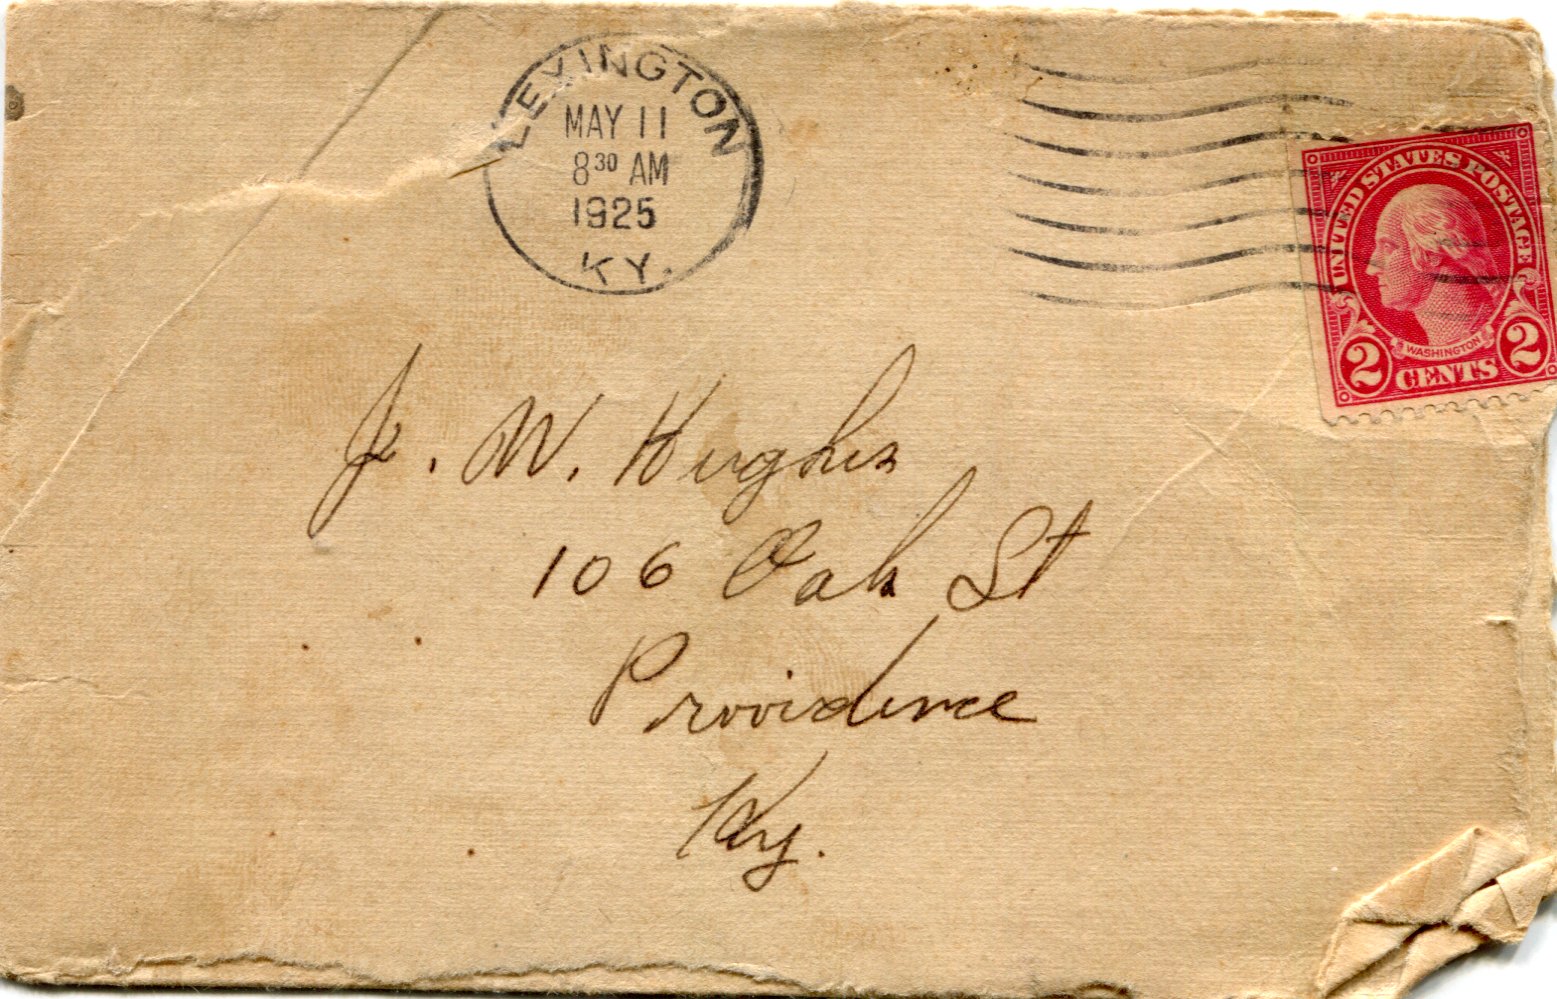 LEXINGTON
MAY 11
8 30 AM
1925
KY.
UNITED STATES POSTAGE
WASHINGTON
2 CENTS 2
J. W. Hughes
106 Oak St
Providence
Ky.